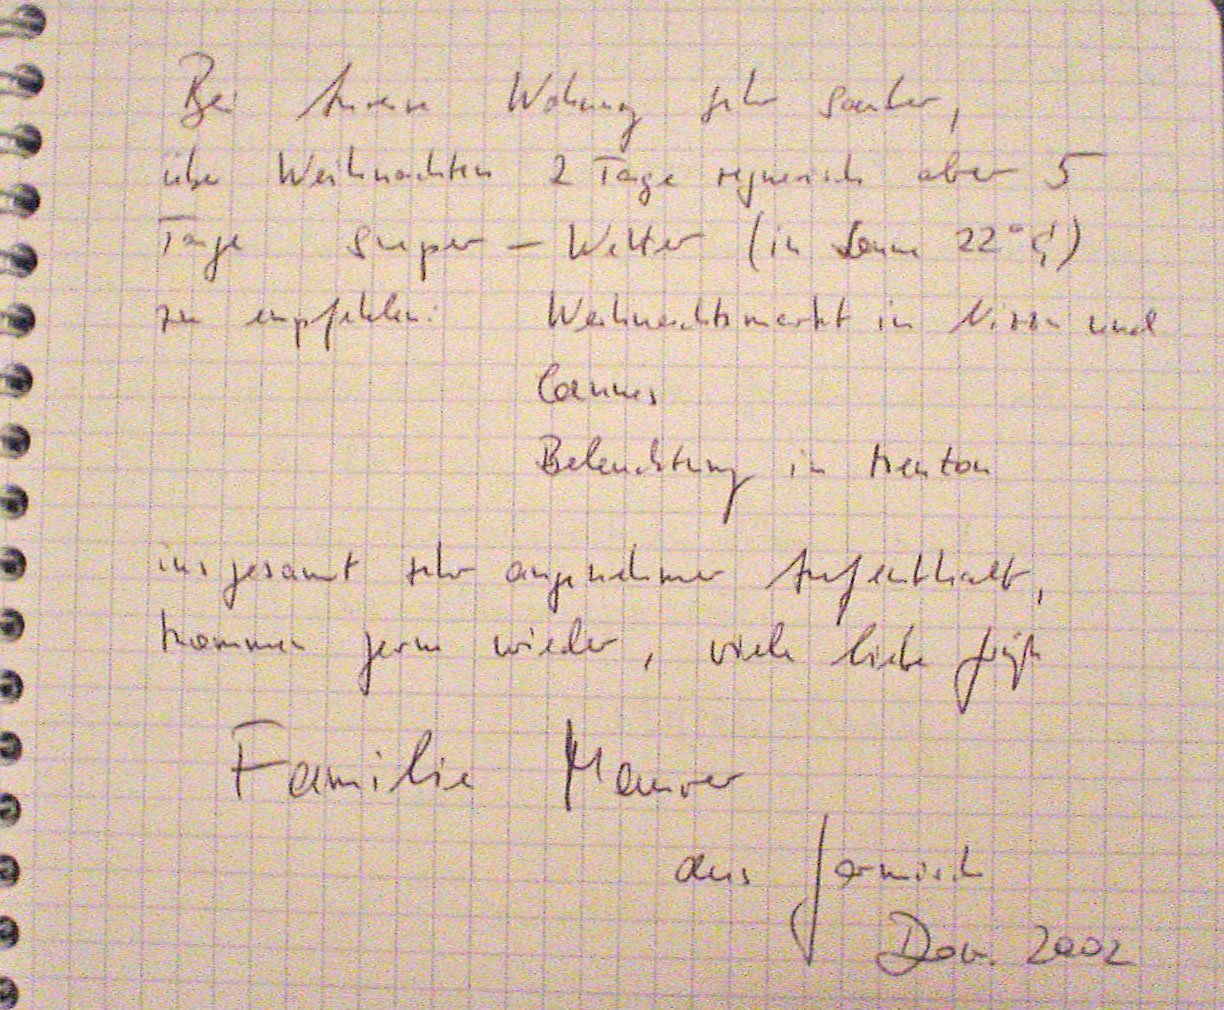 Bei Anreise Wohnung sehr sauber,
über Weihnachten 2 Tage regnerisch aber 5
Tage super - Wetter (in Sonne 22°C)
zu empfehlen: Weihnachtsmarkt in Nizza und
Cannes
Beleuchtung in Menton
insgesamt sehr angenehmer Aufenthalt,
kommen gerne wieder, viele liebe Grüße
Familie Maurer
aus Garmisch
2002